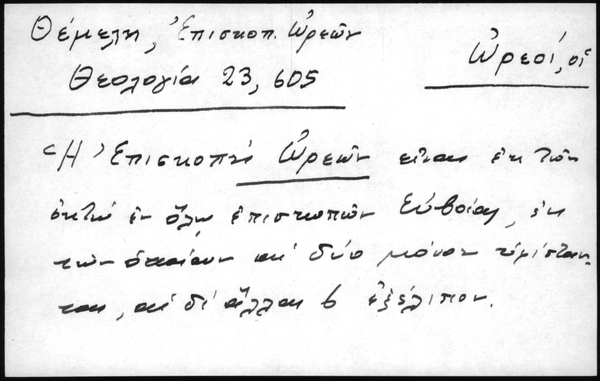 Θέμελη, Ἐπισκοπ. Ὠρεῶν
Ὠρεοί, οἱ
Θεολογία 23, 605
Ἡ Ἐπισκοπή Ὠρεῶν εἶναι ἐκ τῶν
ὀκτώ ἐν ὅλῳ ἐπισκοπῶν Εὐβοίας, ἐκ
τῶν ὁποίων αἱ δύο μόνον ὑφίσταν
ται, αἱ δέ ἄλλαι 6 ἐξέλιπον.